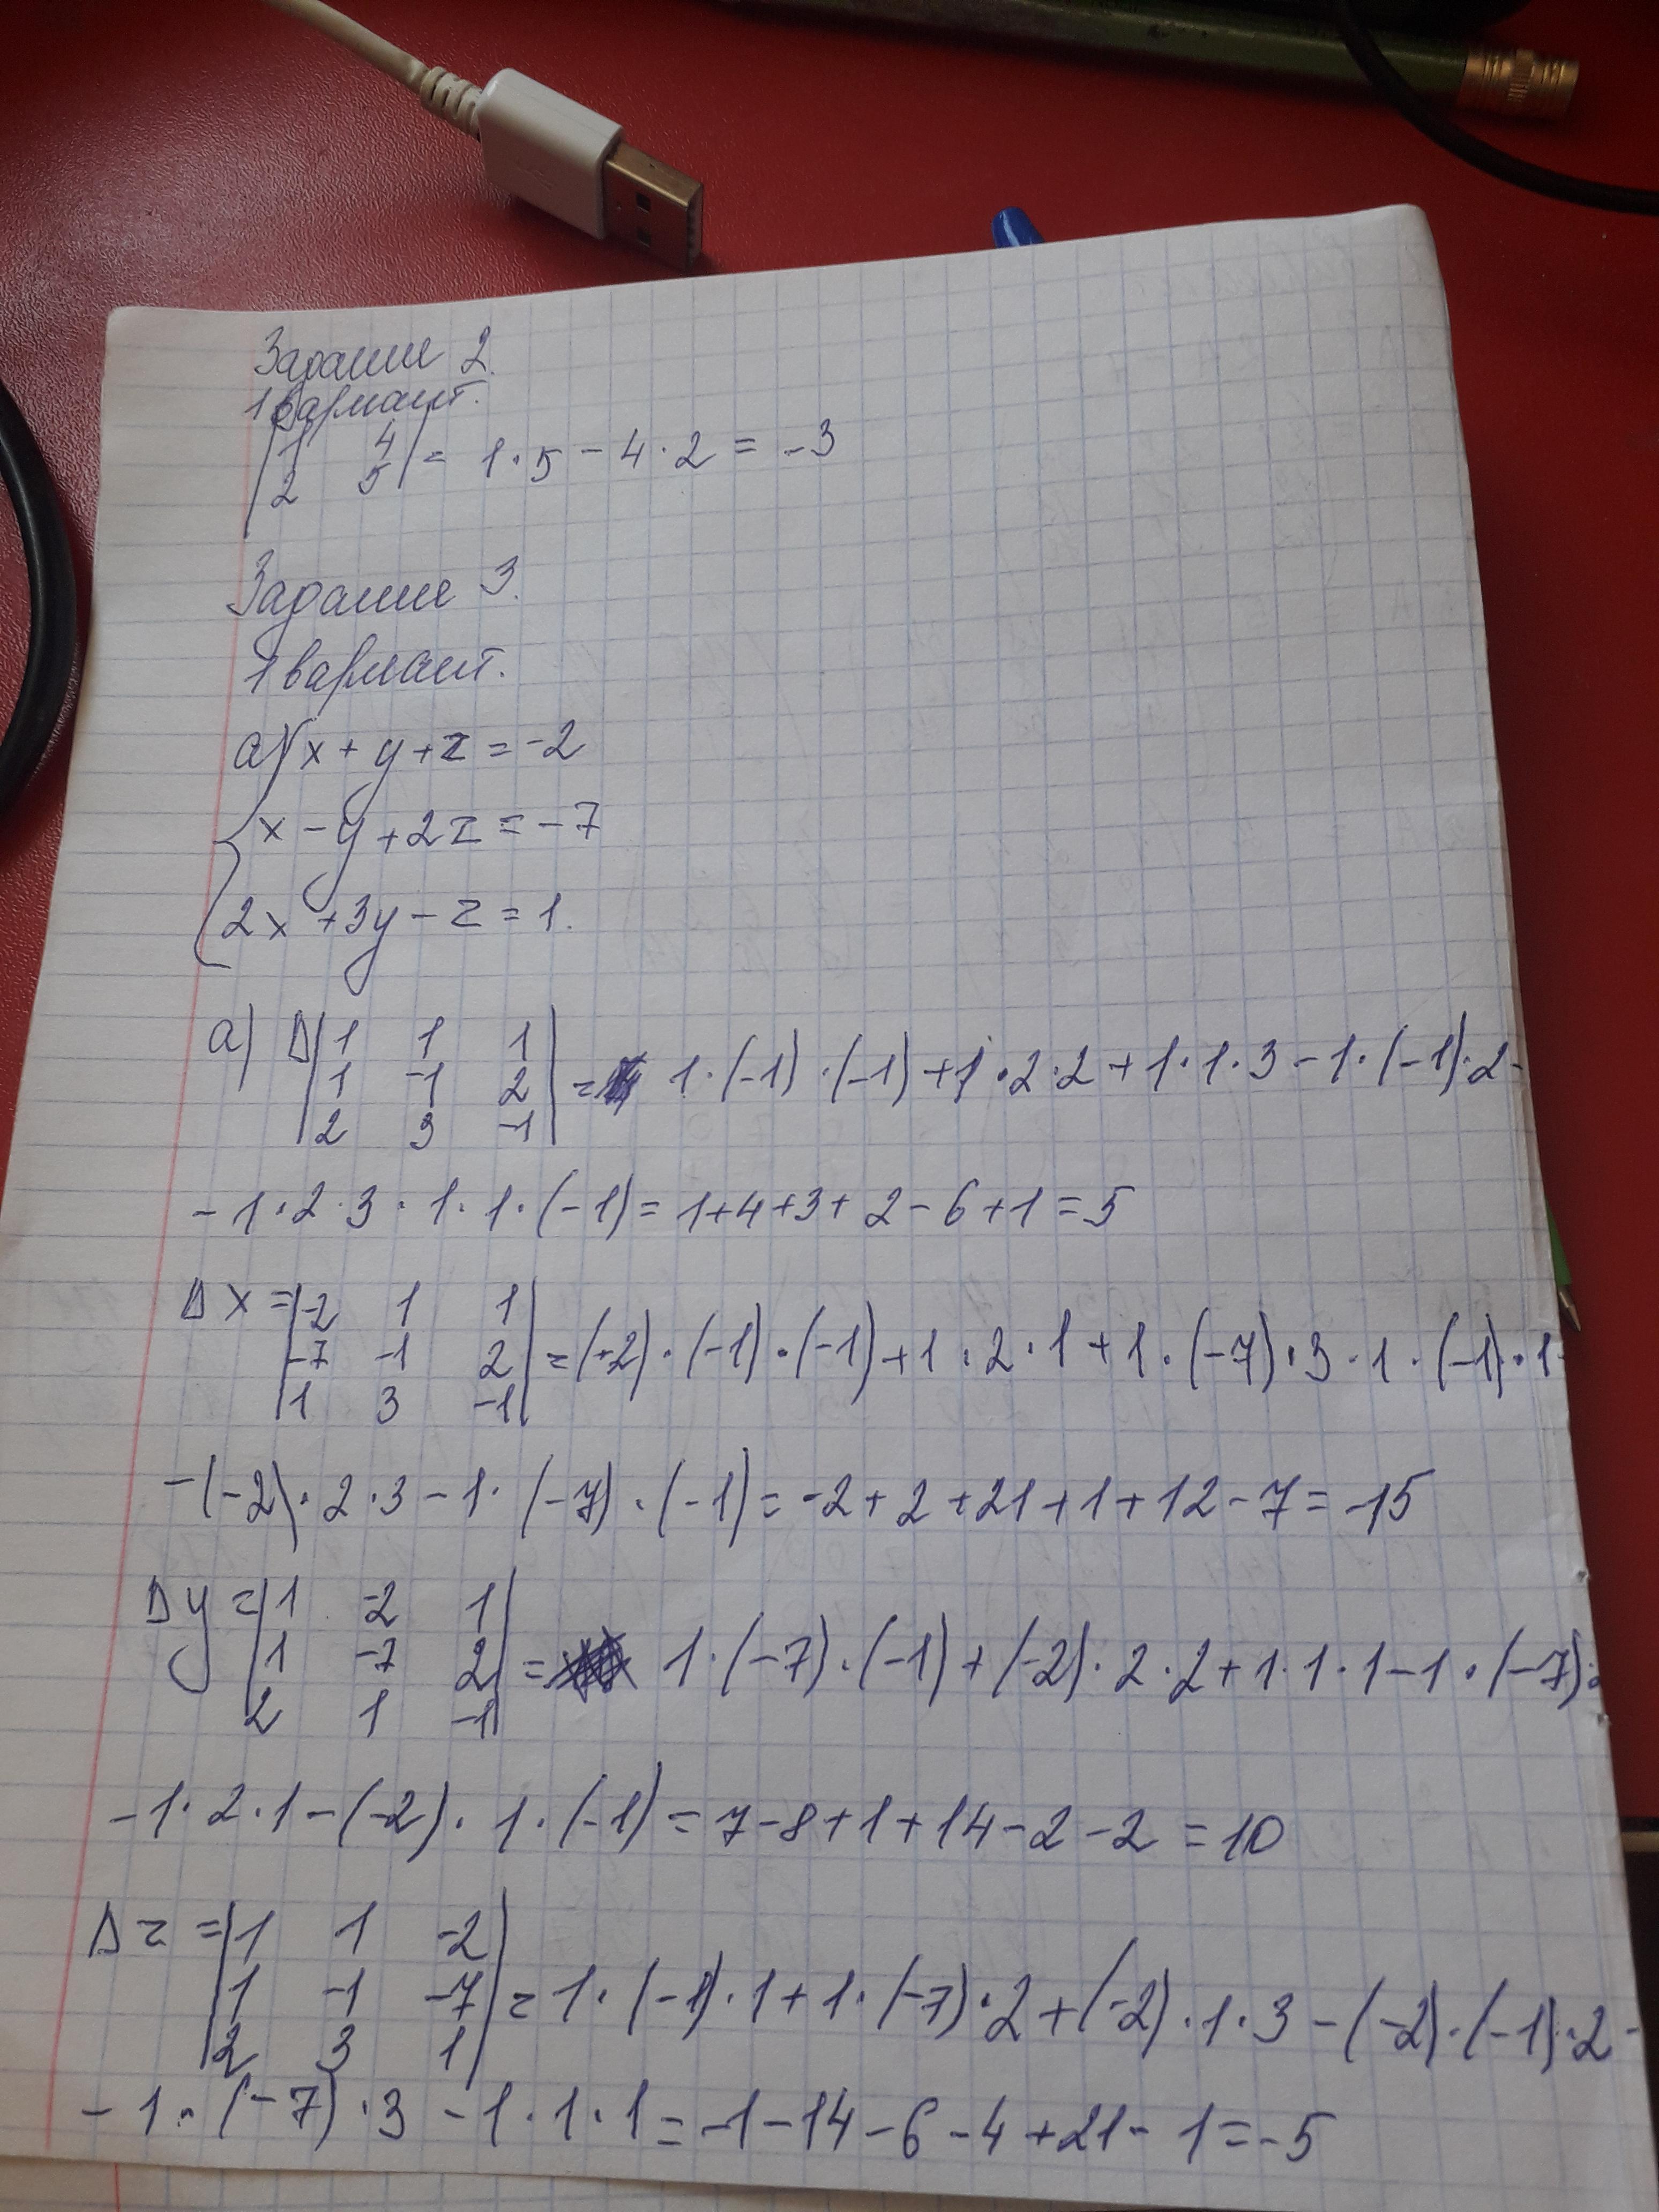 Задание 2.
1 вариант.
|1 4|
|2 5| = 1·5 - 4·2 = -3
Задание 3.
1 вариант.
а) { x + y + z = -2
x - y + 2z = -7
2x + 3y - z = 1.
а) Δ |1 1 1|
|1 -1 2| = 1·(-1)·(-1)+1·2·2+1·1·3-1·(-1)·2-
|2 3 -1|
-1·2·3·1·1·(-1)=1+4+3+2-6+1=5
Δx = |-2 1 1|
|-7 -1 2| = (-2)·(-1)·(-1)+1·2·1+1·(-7)·3-1·(-1)·1-
|1 3 -1|
-(-2)·2·3-1·(-7)·(-1)=-2+2+21+1+12-7=-15
Δy = |1 -2 1|
|1 -7 2| = 1·(-7)·(-1)+(-2)·2·2+1·1·1-1·(-7)·2
|2 1 -1|
-1·2·1-(-2)·1·(-1)=7-8+1+14-2-2=10
Δz = |1 1 -2|
|1 -1 -7| = 1·(-1)·1+1·(-7)·2+(-2)·1·3-(-2)·(-1)·2-
|2 3 1|
-1·(-7)·3-1·1·1=-1-14-6-4+21-1=-5